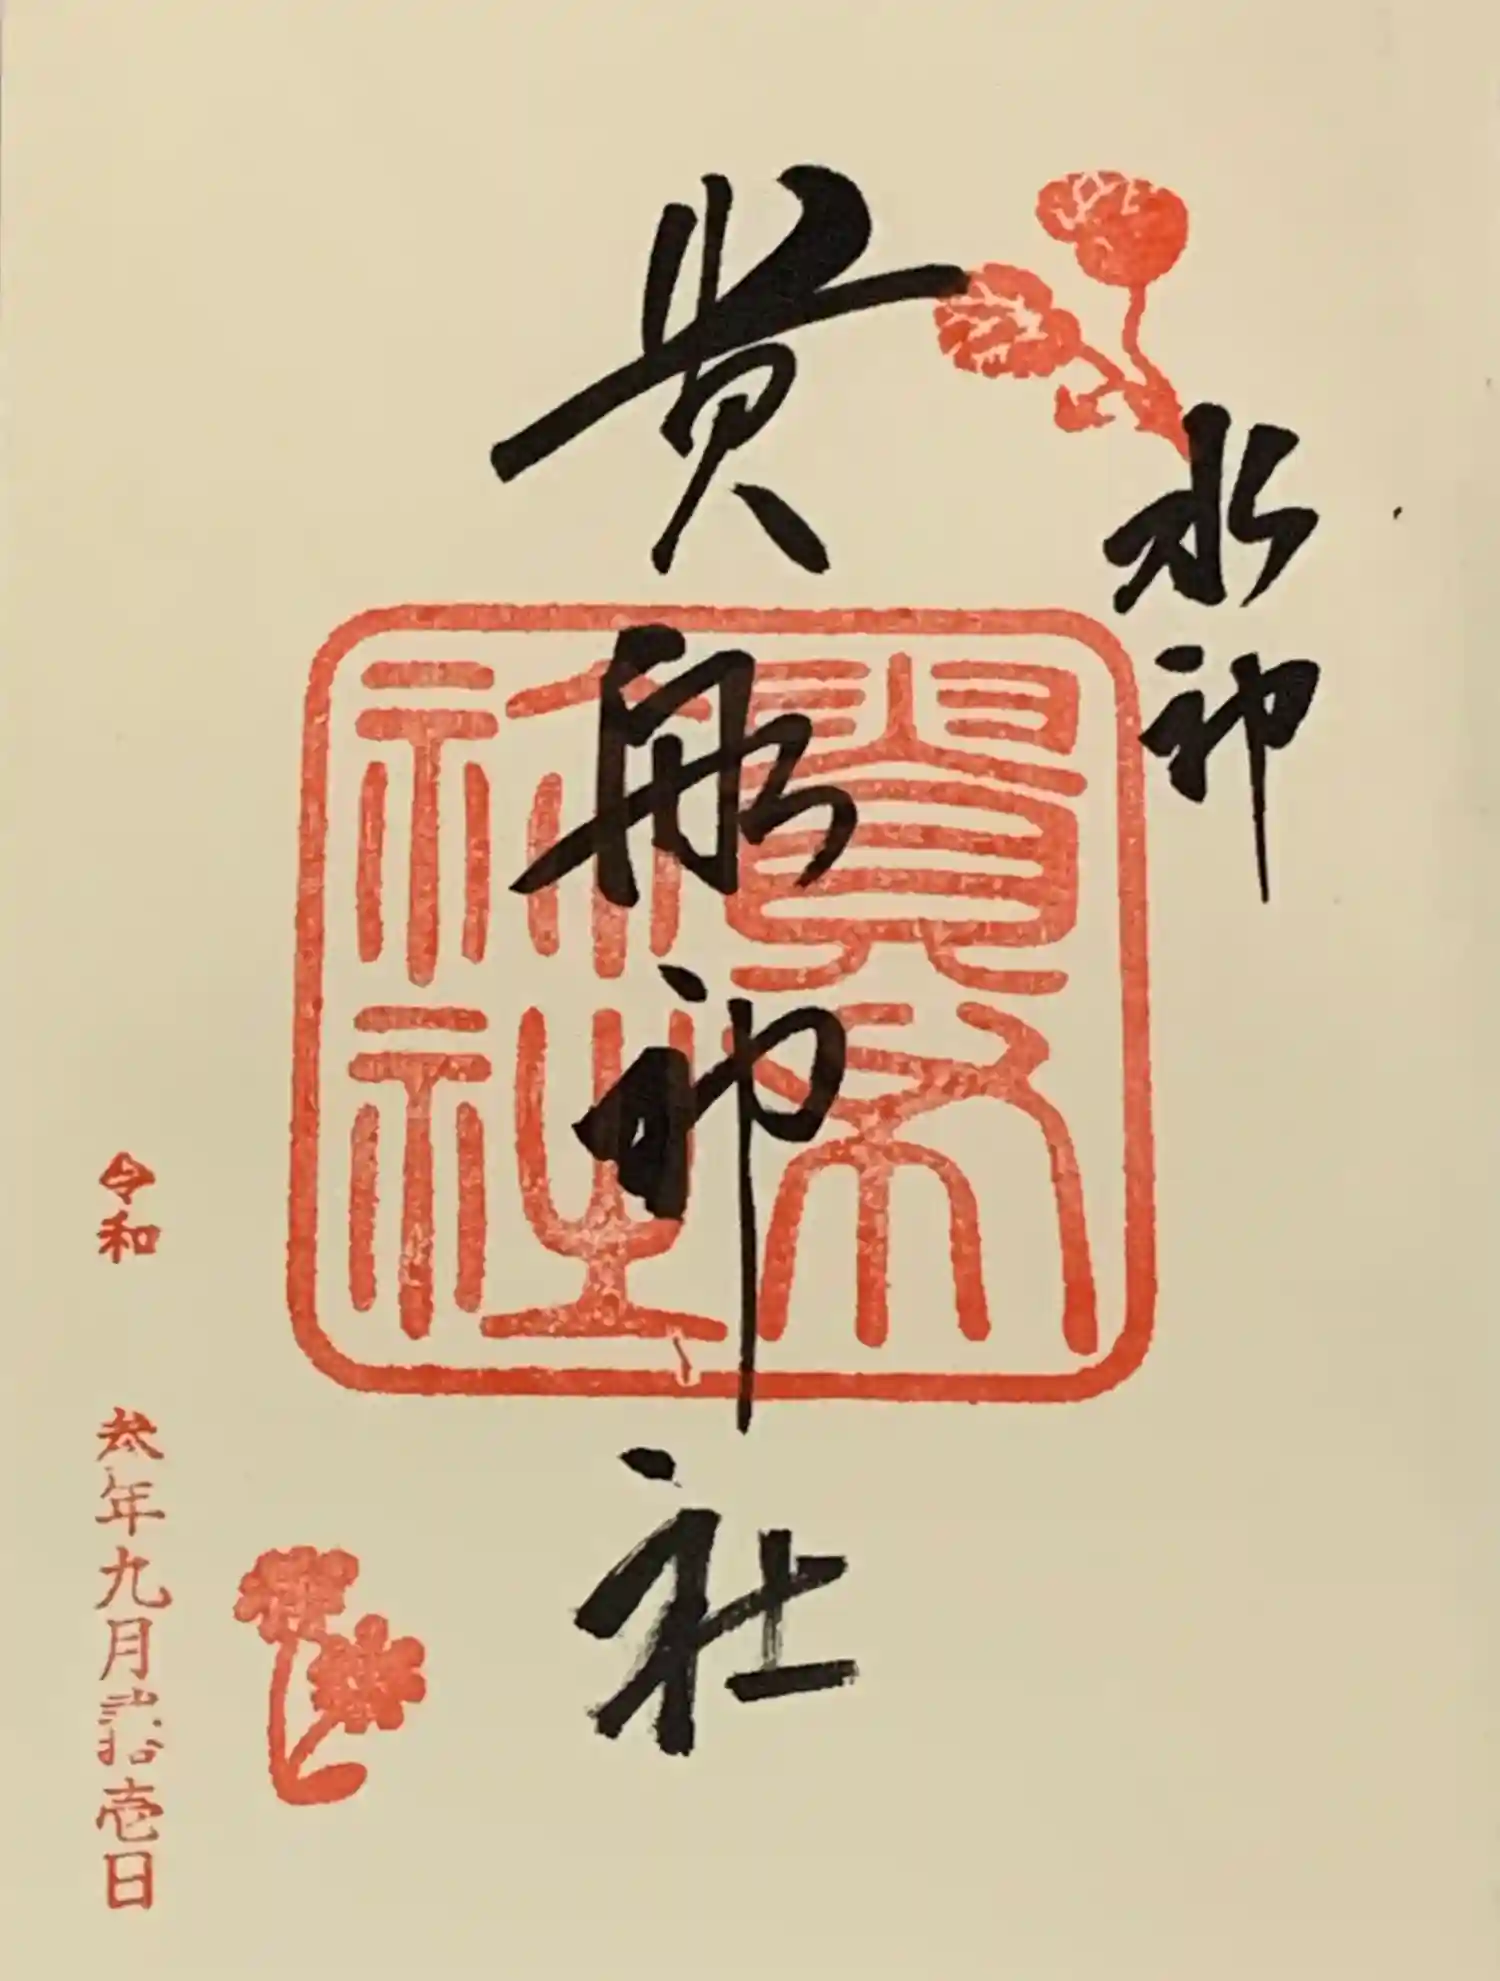 水神
貴船神社
貴布祢社
令和 参年九月弐拾壱日